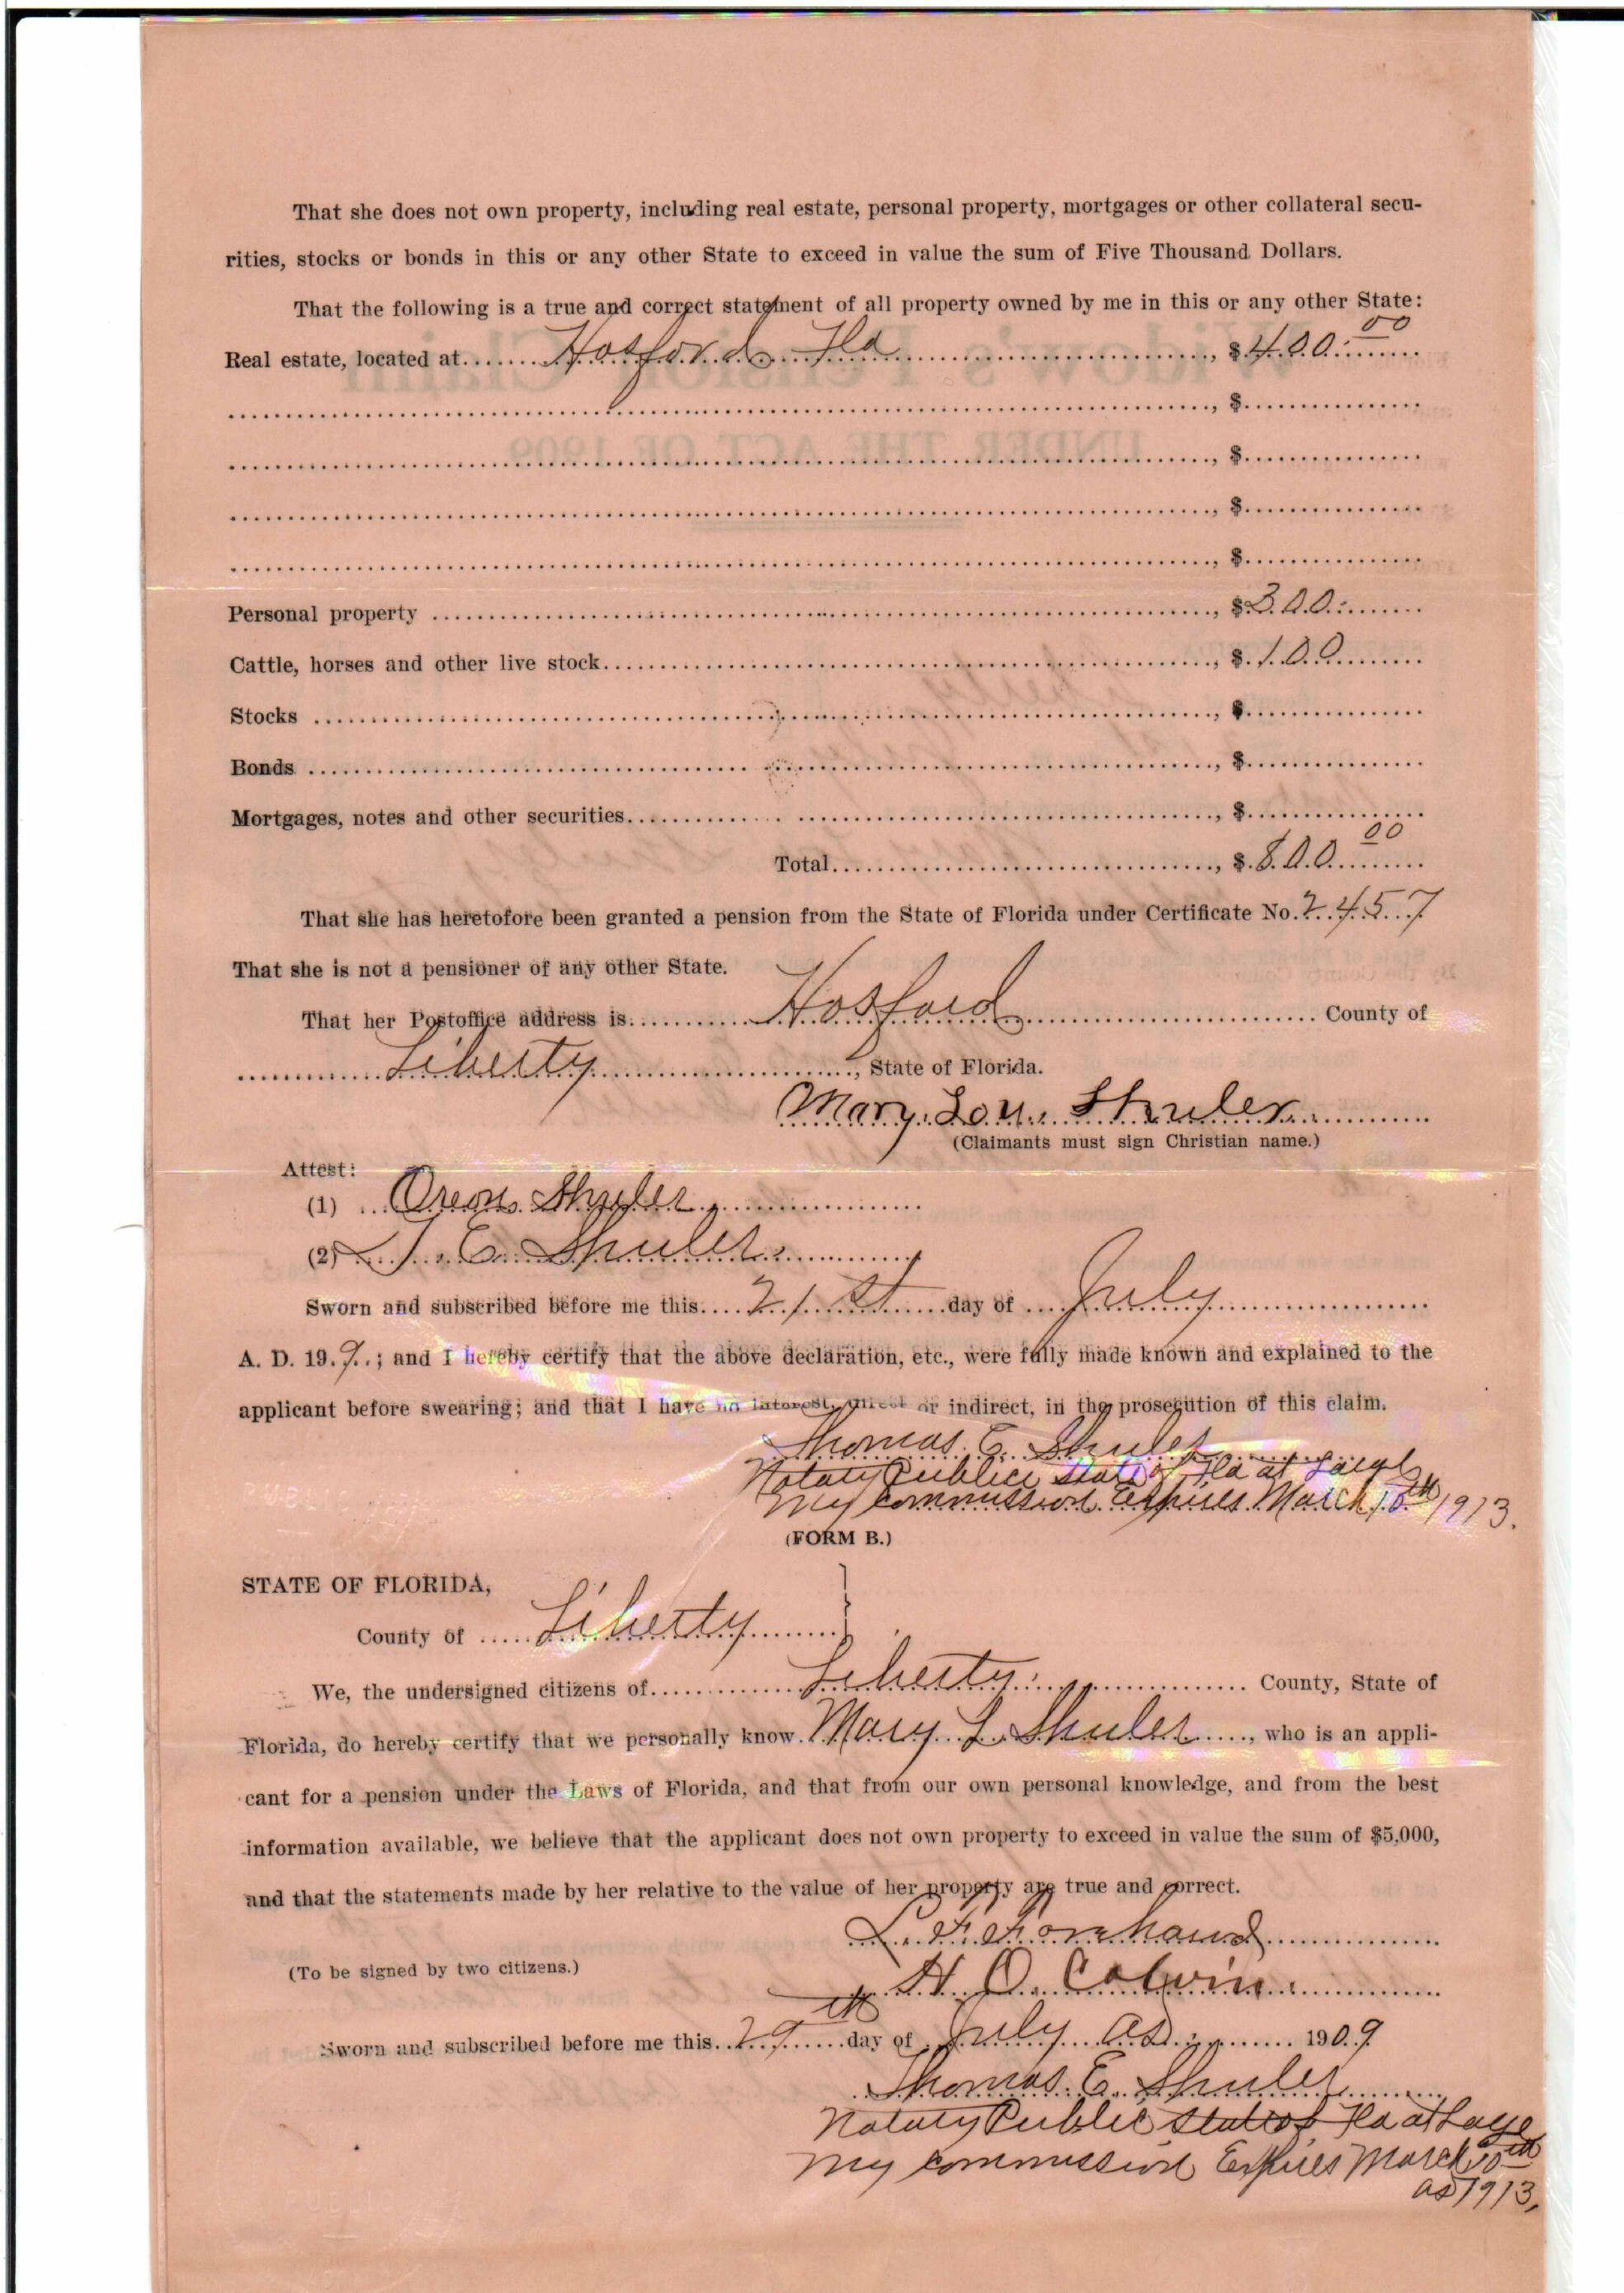 That she does not own property, including real estate, personal property, mortgages or other collateral secu-
rities, stocks or bonds in this or any other State to exceed in value the sum of Five Thousand Dollars.
That the following is a true and correct statement of all property owned by me in this or any other State:
Real estate, located at Hosford Fla , $400.00
, $
, $
, $
, $
Personal property , $300
Cattle, horses and other live stock , $100
Stocks , $
Bonds , $
Mortgages, notes and other securities , $
Total , $800.00
That she has heretofore been granted a pension from the State of Florida under Certificate No. 2457
That she is not a pensioner of any other State.
That her Postoffice address is Hosford County of
Liberty , State of Florida.
Mary Lou Shuler
(Claimants must sign Christian name.)
Attest:
(1) Oreon Shuler
(2) T. E. Shuler
Sworn and subscribed before me this 21st day of July
A. D. 19 9 ; and I hereby certify that the above declaration, etc., were fully made known and explained to the
applicant before swearing; and that I have no interest, direct or indirect, in the prosecution of this claim.
Thomas E. Shuler
Notary Public State of Fla at Large
My commission Expires March 10th 1913.
(FORM B.)
STATE OF FLORIDA,
County of Liberty
We, the undersigned citizens of Liberty County, State of
Florida, do hereby certify that we personally know Mary L Shuler , who is an appli-
cant for a pension under the Laws of Florida, and that from our own personal knowledge, and from the best
information available, we believe that the applicant does not own property to exceed in value the sum of $5,000,
and that the statements made by her relative to the value of her property are true and correct.
L. F.
(To be signed by two citizens.)
H. O. Colvin
Sworn and subscribed before me this 29th day of July AD 1909
Thomas E. Shuler
Notary Public State of Fla at Large
My commission Expires March 10th
AD 1913.